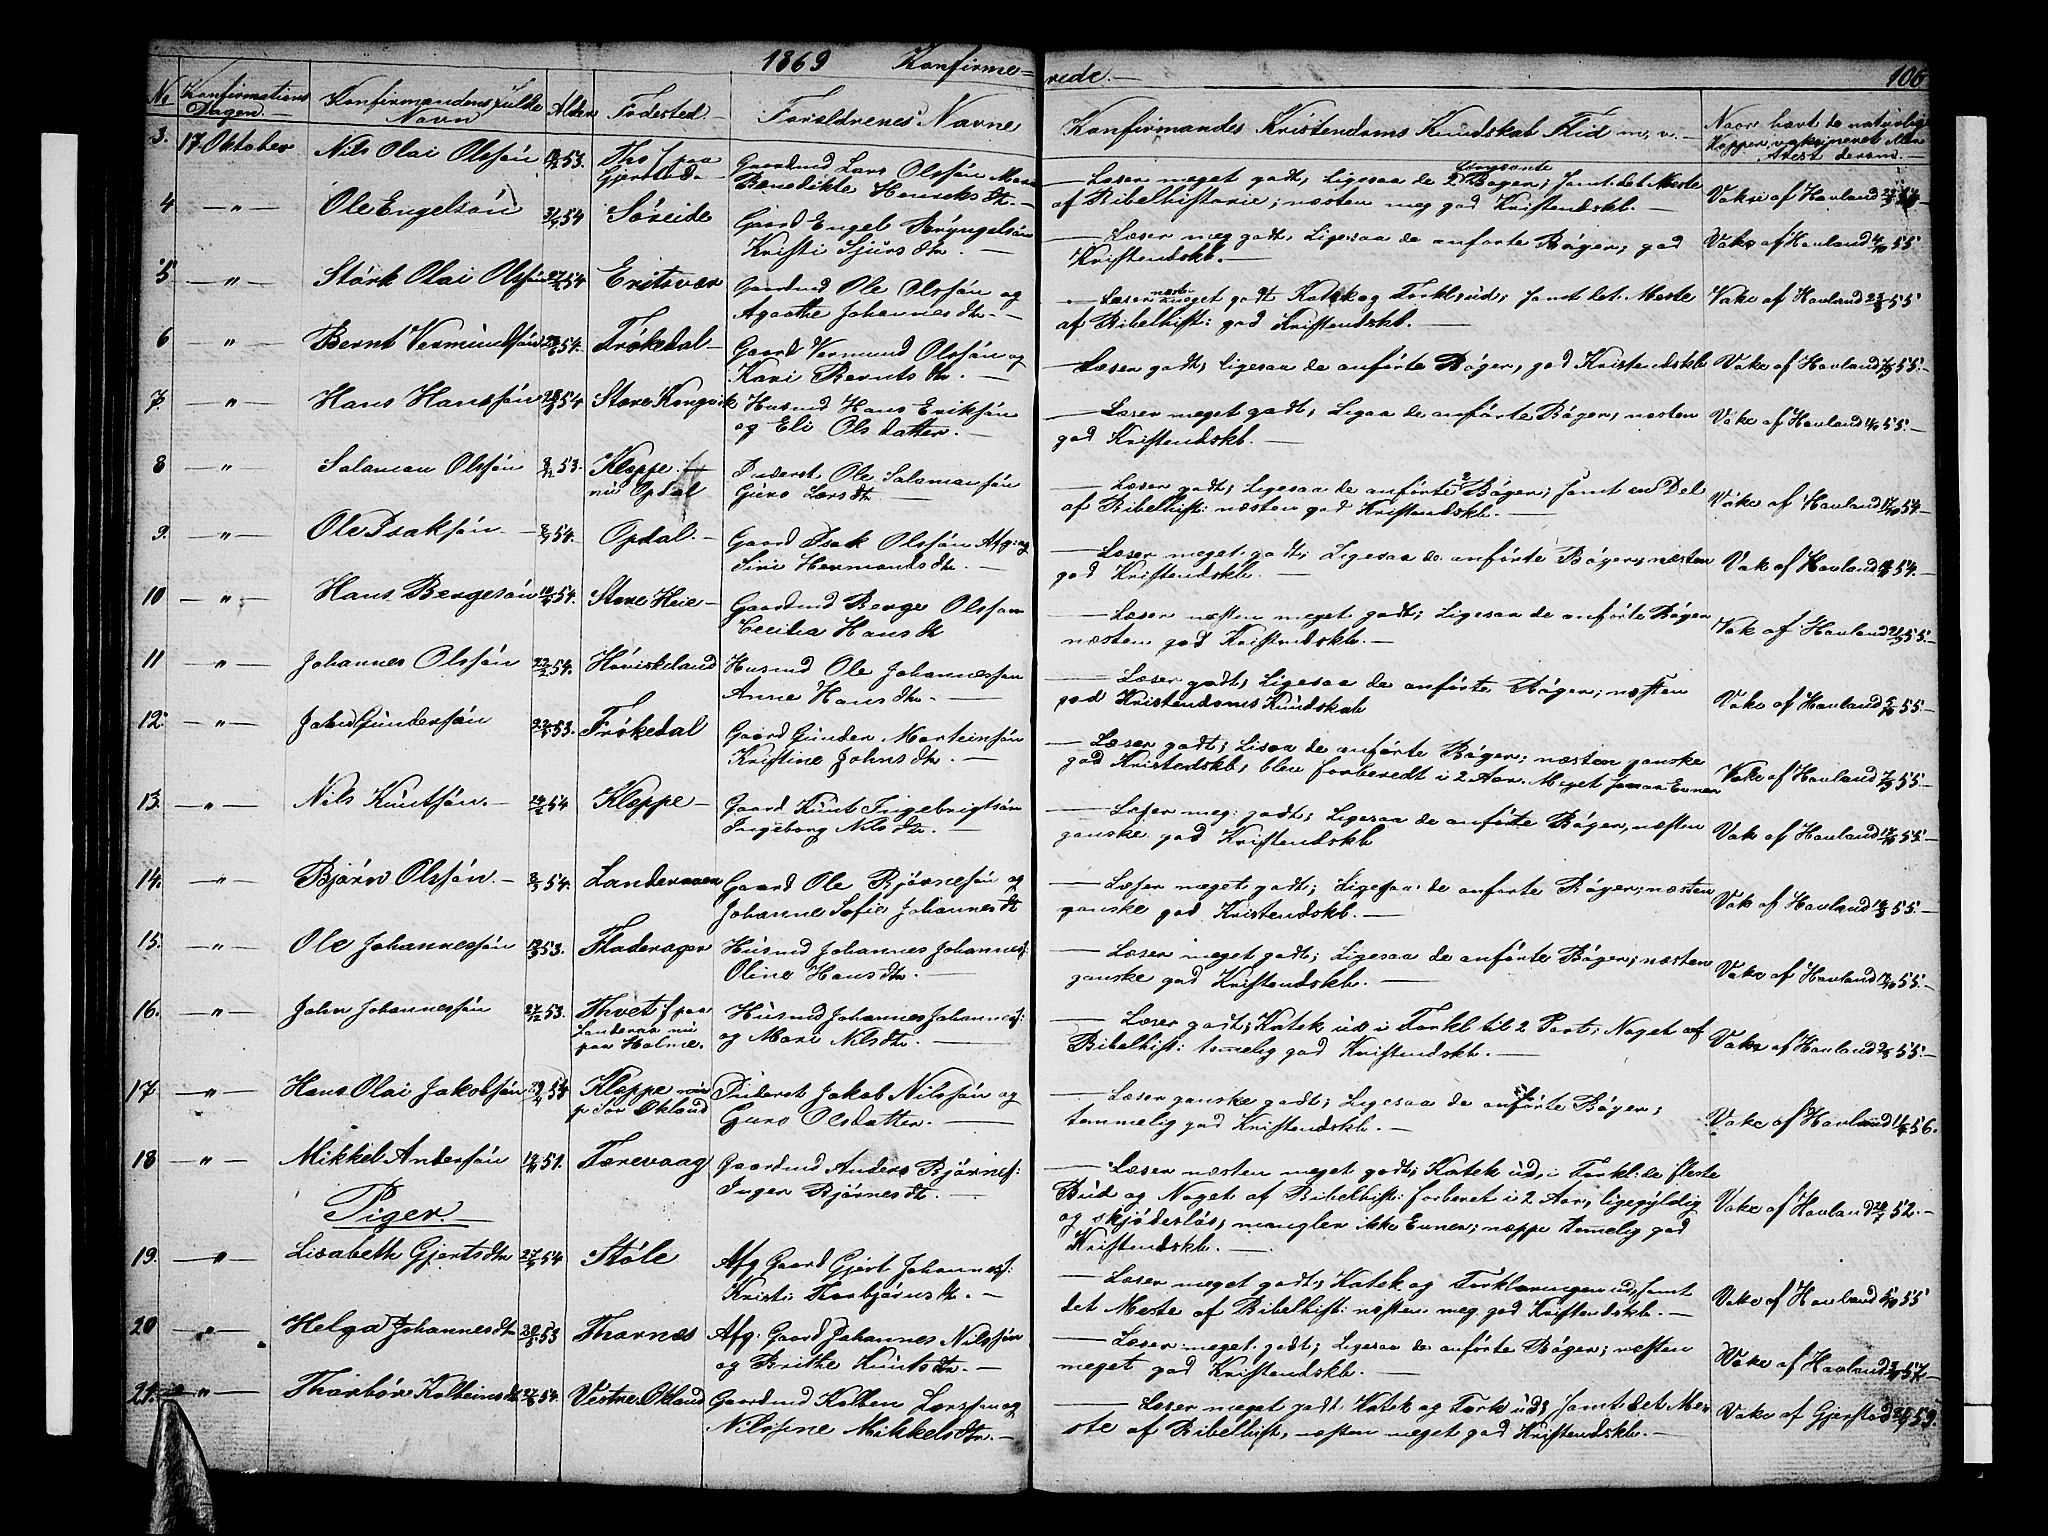 1869 Konfirmerede.— 106
No Konfirmations Dagen.— Konfirmandens fulde Navn Alder Fødested.— Forældrenes Navne Konfirmandes Kristendoms Kundskab Flid m, v.— Naar havt de naturlige Kopper, vaksineret
Atest derom.—
3. 17 Oktober Nils Olai Olssøn 53. Gaardmd Lars Olssøn
Benedikte Henriks dtr.—
— Læser meget godt, Ligesaa de 2 Bøger; samt det Meste
af Bibelhistorie; næsten meg god Kristendskb.— Vaks af Havland
4 —"— Ole Engelsøn 54 Søreide Gaard Engel Brÿngelsøn
Kristi Sjurs dtr.—
— Læser meg godt, Ligesaa de anførte Bøger; god
Kristendskb.— Vaks af Havland 55
5 —"— Størk Olai Olssøn 54 Eritsvær Gaardmd Ole Olssøn og
Agaathe Johannes dtr.—
— Læser næsten meget godt Katek og Forkl: ud; samt det Meste
af Bibelhist: god Kristendskb.— Vaks af Havland 55
6 —"— Bernt Vermundsøn 54. Frøkedal— Gaard Vermund Olssøn og
Kari Bernts dtr.—
— Læser godt, Ligesaa de anførte Bøger, god Kristendskb Vaks af Havland 55.—
7. —"— Hans Hanssøn 54 Store Kongsvik Husmd Hans Eriksøn
og Eli Olsdatter.—
— Læser meget godt; Ligaa de anførte Bøger; næsten
god Kristendskb.— Vaks af Havland 55.—
8 —"— Salaman Olssøn 53. Kleppe.—
nu Opdal
Inderst. Ole Salamansøn
Guro Lars dtr
— Læser godt; Ligesaa de anførte 2 Bøger; samt en Del
af Bibelhist: næsten god Kristendskb.— Vaks af Havland 54—
9. —"— Ole Isaksøn.— 54. Opdal.— Gaard Isak Olssøn Afg: og
Siri Hermands dtr.—
— Læser meget godt; Ligesaa de anførte Bøger; næsten
god Kristendskb.— Vak af Havland 54.—
10 —"— Hans Bergesøn 54. Store Heie— Gaardmd Berge Olssøn
Cecilia Hans dtr
— Læser næsten meget godt; Ligesaa de anførte Bøger
næsten god Kristendskb.— Vak af Havland 55.—
11 —"— Johannes Olssøn 54. Høviskeland Husmd Ole Johannessøn
Anne Hans dtr.—
— Læser godt, Ligesaa de anførte Bøger; næsten
god Kristendoms Kundskab Vaks af Havland 55.—
12. —"— John Gundersøn 53. Frøkedal Gaard Gunder Marteinsøn
Kristine Johns dtr.—
— Læser godt; Lisaa de anførte Bøger; næsten ganske
god Kristendskb, blev forberedt i 2 Aar. Meget smaa Evner Vaks af Havland 55.—
13. —"— Nils Knutsøn.— 54 Kleppe— Gaard Knut Ingebrigtsøn
Ingeborg Nils dtr.—
— Læser meg: godt; Ligesaa de anførte Bøger, næsten
ganske god Kristendskb Vak af Havland 55.—
14. —"— Bjørn Olssøn.— 54. Landeraaen Gaard Ole Bjørnesøn og
Johanne Sofie Johannes dtr
— Læser meget godt; Ligesaa de anførte Bøger; næsten
ganske god Kristendskb.— Vak af Havland 55.—
15. —"— Ole Johannessøn 53. Fladerager Husmd Johannes Johanness:
Oline Hans dtr.—
— Læser meget godt; Ligesaa de anførte Bøger; næsten
ganske god Kristendskb.— Vak af Havland 55.—
16. —"— John Johannessøn 53. Thvet f paa
Landeraa nu
paa Holme.
Husmd Johannes Johanness:
og Mari Nils dtr.—
— Læser godt; Katek ud i Forkl til 2 Part; Noget af
Bibelhist: temmelig god Kristendskb.— Vaks af Havland 55.—
17. —"— Hans Olai Jakobsøn 54 Kleppe nu
p Sør Økland
Inderst Jakob Nilssøn og
Guro Olsdatter.—
— Læser ganske godt; Ligesaa de anførte Bøger;
temmelig god Kristendskb.— Vaks af Havland 56.
18 —"— Mikkel Andersøn 51. Færevaag Gaardmd Anders Bjørnes:
Inger Bjørnes dtr.—
— Læser næsten meget godt; Katek ud, i Forkl: de fleste
Bud og Noget af Bibelhist: forberet i 2 Aar, ligegyldig
og skjødesløs, mangler ikke Evner; neppe temelig god
Kristendskb.— Vaks af Havland 52.—
Piger.
19. —"— Lisabeth Gjerts dtr 54 Støle Afg Gaard Gjert Johanness:
Kristi Thorbjørns dtr.—
— Læser meget godt; Katek og Forklaringen ud, samt
det Meste af Bibelhist: næsten meg god Kristendskb.— Vaks af Havland 55
20 —"— Helga Johannes dtr 53 Thornæs Afg. Gaard Johannes Nilssøn
og Brithe Knuts dtr.—
— Læser meget godt; Ligesaa de anførte Bøger; næsten
meget god Kristendskb.— Vaks af Havland 57—
21. —"— Thorbør Kolbeins dtr 54. Vestre Økland Gaardmd Kolben Larssøn og
Nilsine Mikkels dtr.—
— Læser meget godt Katek og Fork ud; samt det Me
ste af Bibelhist, næsten meget god Kristendskb.— Vaks af Gjerstad 59.